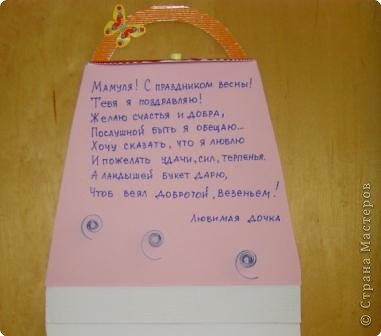 Мамуля! С праздником весны!
Тебя я поздравляю!
Желаю счастья и добра,
Послушной быть я обещаю...
Хочу сказать, что я люблю
И пожелать удачи, сил, терпенья.
А ландышей букет дарю,
Чтоб веял добротой, везеньем!
Любимая дочка
© Страна Мастеров